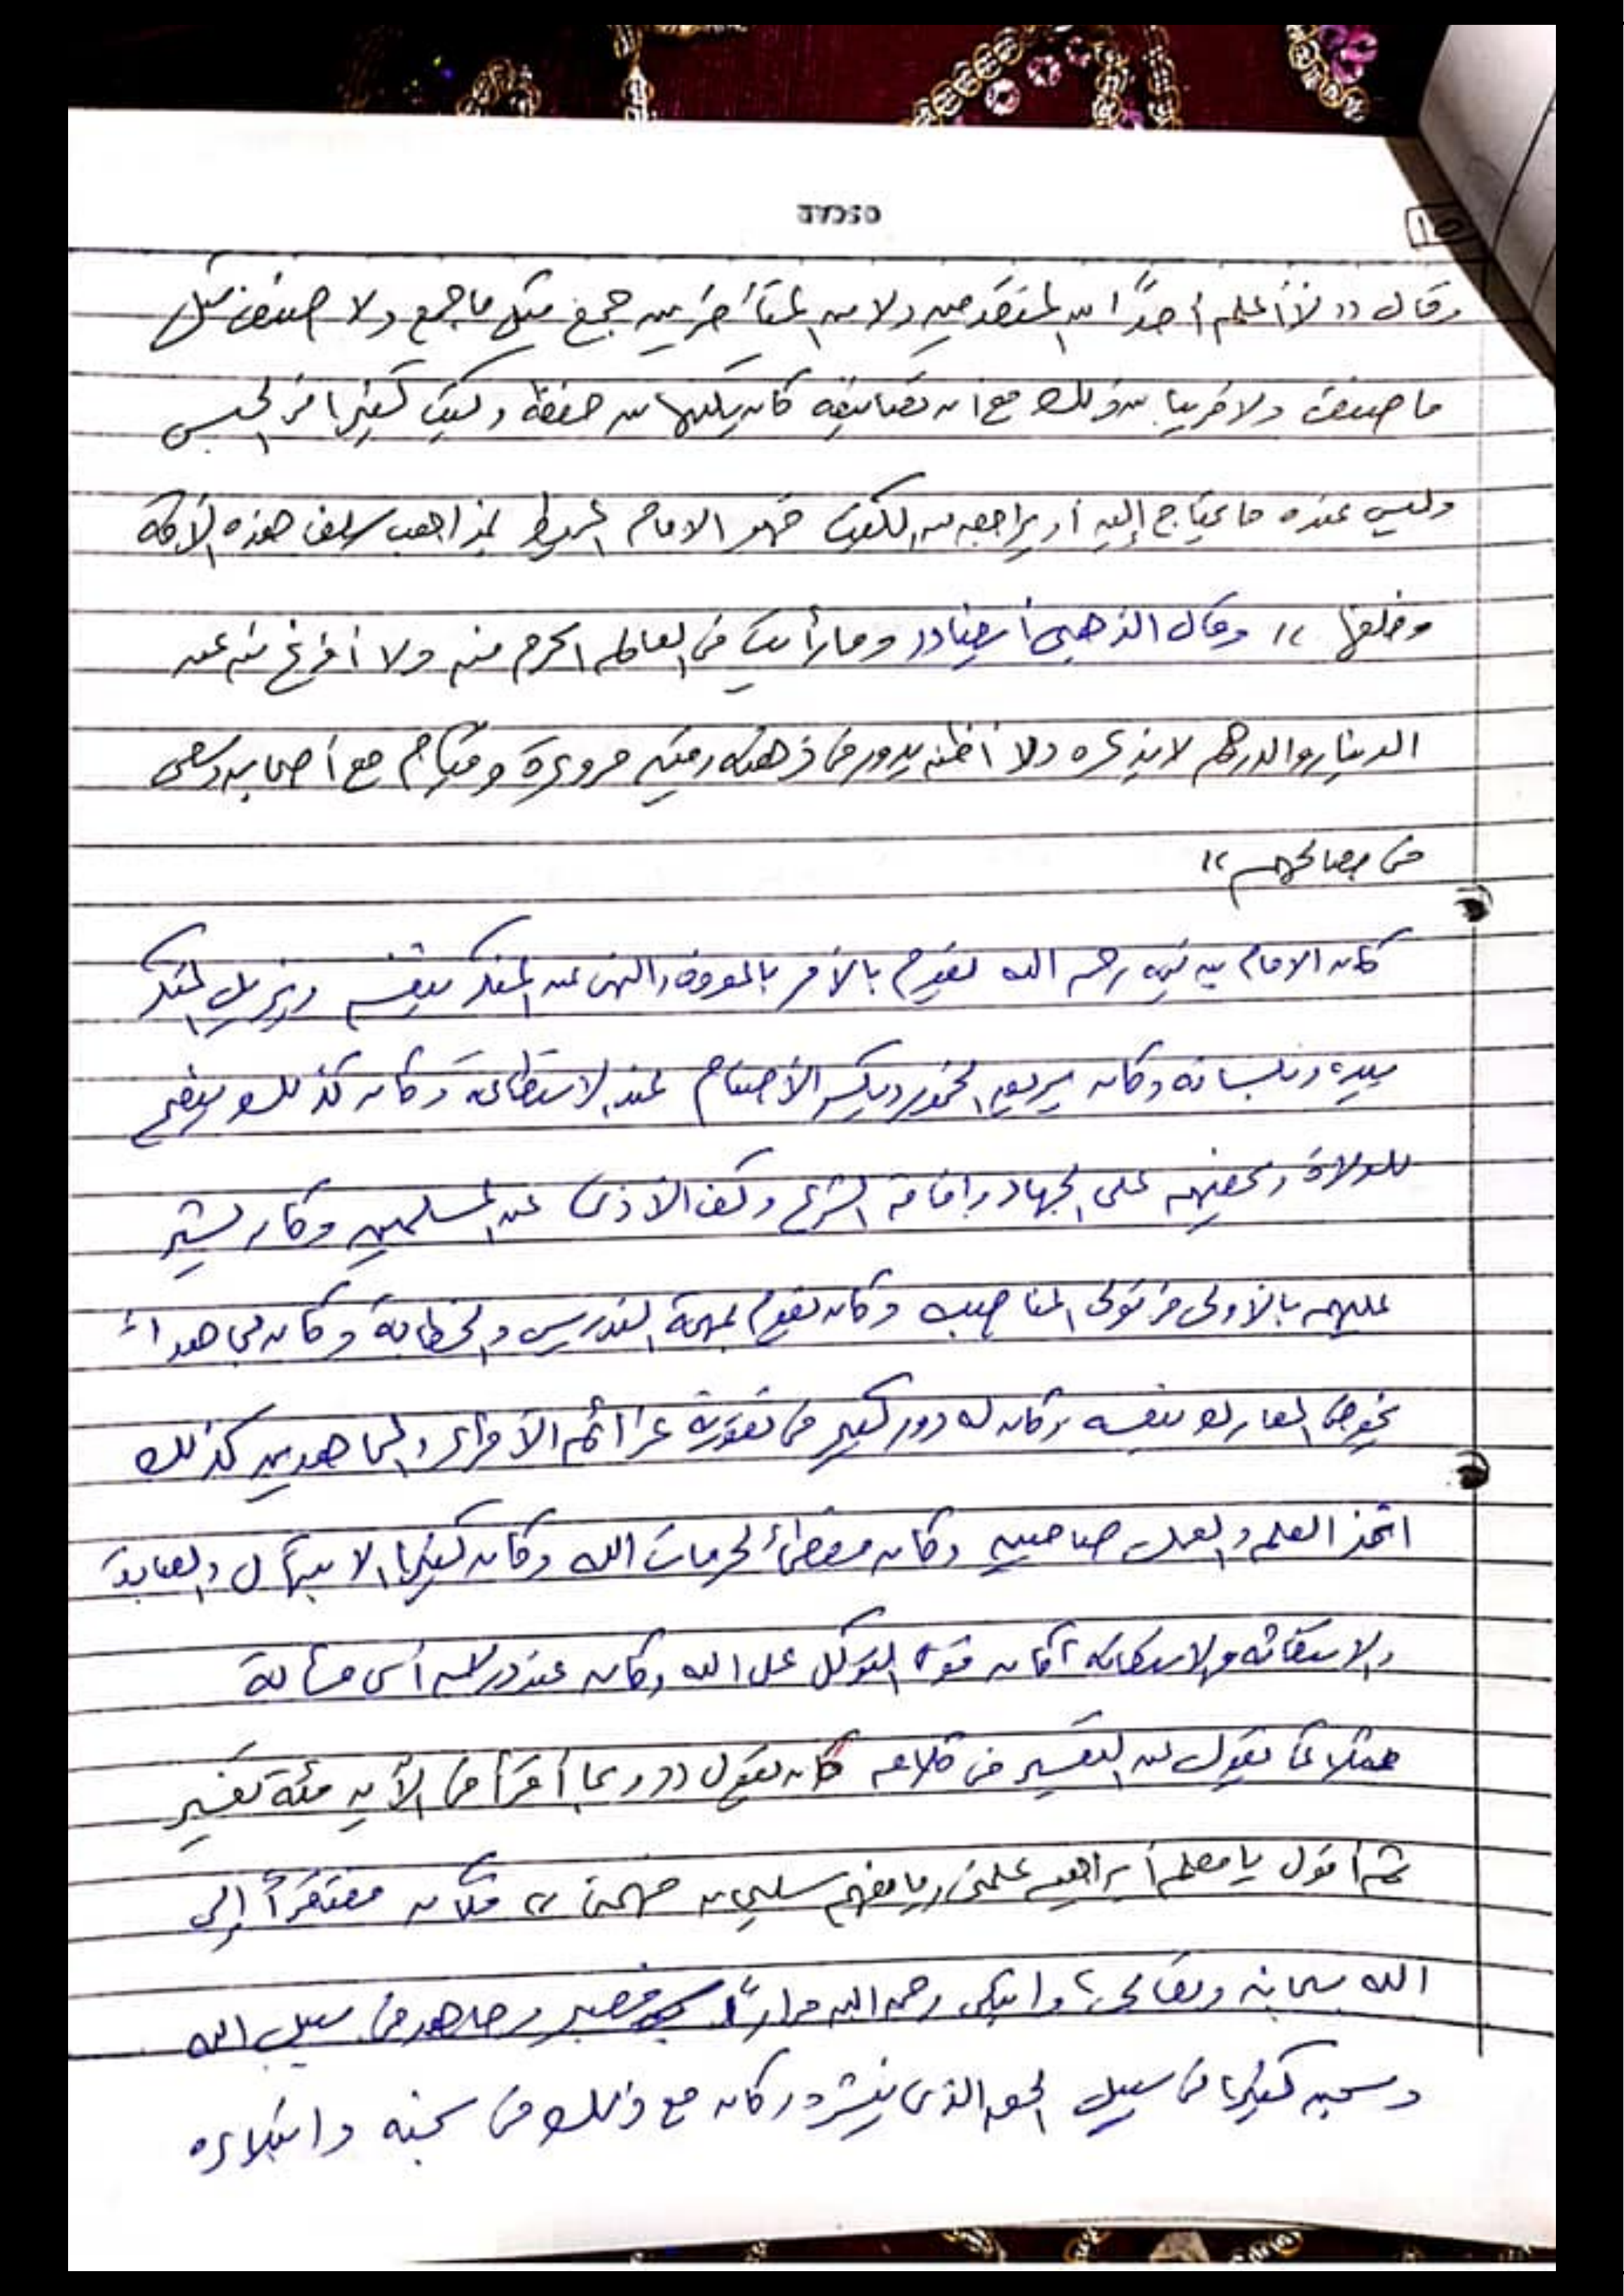 OSCAR
15
وقال (( لا أعلم أحداً من المتقدمين ولا من المتأخرين جمع مثل ما جمع ولا صنف مثل
ما صنف ولا قريبا من ذلك مع ان تصانيفه كان يكتبها من حفظه وكتب كثيرا في الحبس
وليس عنده ما يحتاج إليه أو يراجعه من الكتب فهو الامام المحيط بمذاهب سلف هذه الأمة
وخلفها )) وقال الذهبي أيضا (( وما رأيت في العالم اكرم منه ولا أفرغ منه عن
الدينار والدرهم لا يذكره ولا أظنه يدور في ذهنه وفيه مروءة وقيام مع أصحابه وسعى
في مصالحهم ))
كان الامام بن تيمية رحمه الله يقوم بالأمر بالمعروف والنهى عن المنكر بنفسه ويزيل المنكر
بيده وبلسانه وكان يريق الخمور ويكسر الأصنام عند الاستطاعة وكان كذلك ينصح
للولاة ويحضهم على الجهاد واقامة الشرع وكف الأذى عن المسلمين وكان يشير
عليهم بالأولى في تولى المناصب وكان يقوم بمهمة التدريس والخطابة وكان مجاهداً
يخوض المعارك بنفسه وكان له دور كبير في تقوية عزائم الأمراء والمجاهدين كذلك
اتخذ العلم والعمل صاحبيه وكان معظماً لحرمات الله وكان كثير الابتهال والعبادة
والاستغاثة والاستعانة كان قوى التوكل على الله وكان عند درسه أى مسألة
مثلا كما يقول عن التفسير في كلامه كان يقول (( ربما أقرأ في الأية مئة تفسير
ثم أقول يا معلم أبراهيم علمنى ويا مفهم سليمان فهمنى )) فكان مفتقراً إلى
الله سبحانه وتعالى، وابتلى رحمه الله مراراً فصبر وجاهد في سبيل الله
وسجن كثيرا في سبيل الحق الذى ينشره وكان مع ذلك في سجنه وابتلاءه